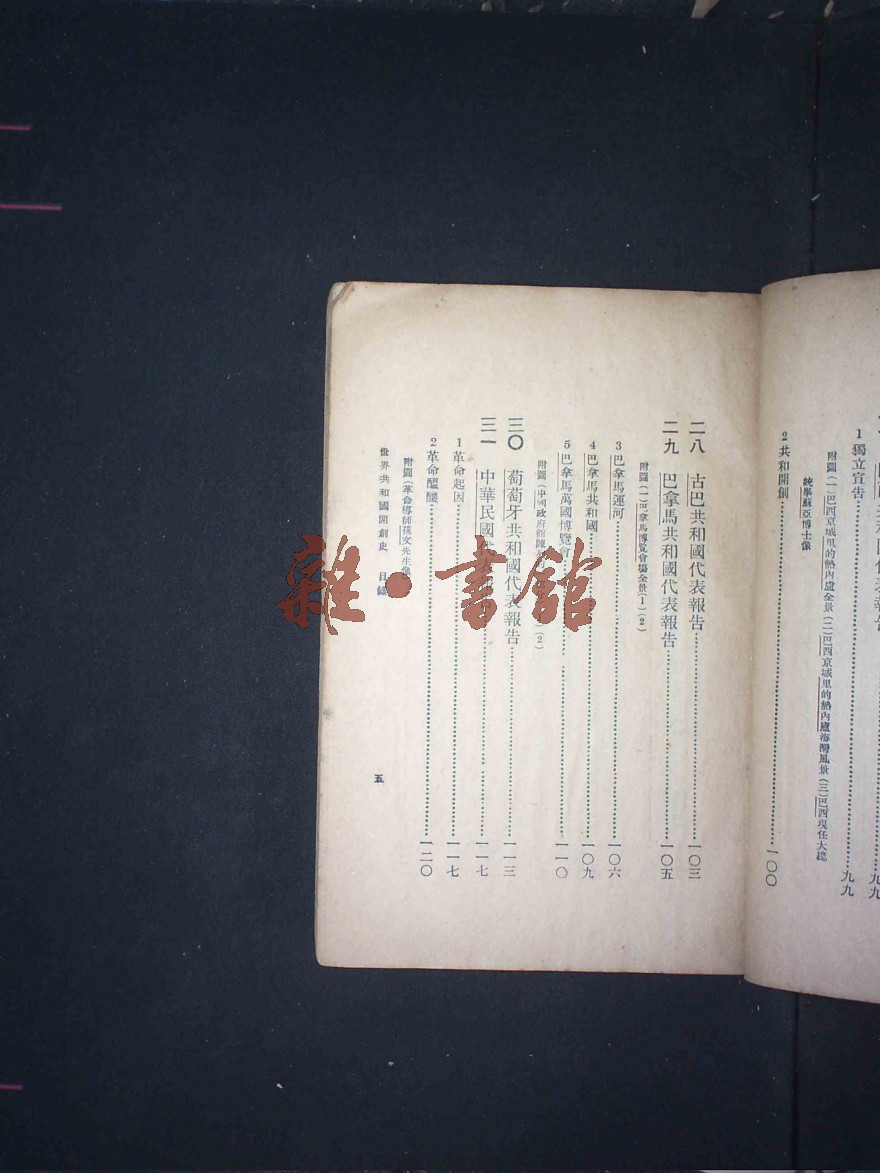 1獨立宣告⋯⋯九九
附圖(一)巴西京城里的熱內盧全景(二)巴西京城里的熱內盧海灣風景(三)巴西現任大總
統畢蘇亞博士像
2共和開創⋯⋯一〇〇
二八 古巴共和國代表報告⋯⋯一〇三
二九 巴拿馬共和國代表報告⋯⋯一〇五
附圖(一)巴拿馬博覽會場全景(1)(2)
3巴拿馬運河⋯⋯一〇六
4巴拿馬共和國⋯⋯一〇九
5巴拿馬萬國博覽會⋯⋯一一〇
附圖(中國政府館陳 (2)
三〇 葡萄牙共和國代表報告⋯⋯一一三
三一 中華民國代⋯⋯一一七
1革命起因⋯⋯一一七
2革命醞釀⋯⋯一二〇
附圖(革命導師孫文先生像
世界共和國開創史 目錄
五
雜·書館